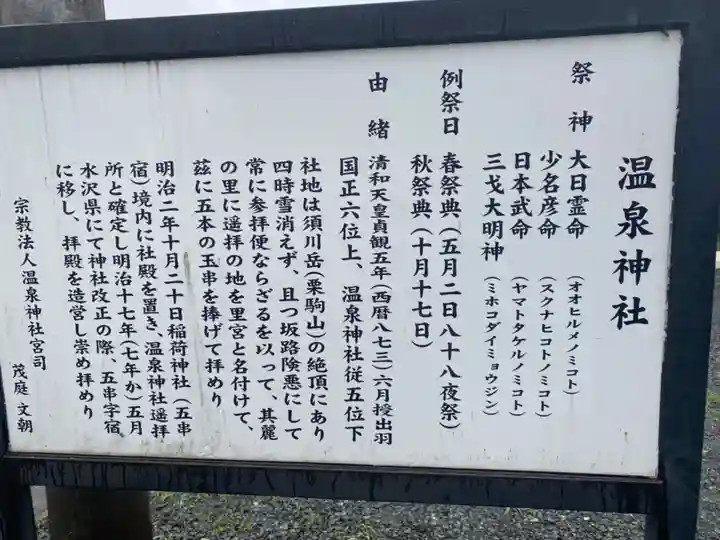 温泉神社
祭神 大日霊命 (オオヒルメノミコト)
少名彦命 (スクナヒコトノミコト)
日本武命 (ヤマトタケルノミコト)
三戈大明神 (ミホコダイミョウジン)
例祭日 春祭典(五月二日八十八夜祭)
秋祭典(十月十七日)
由緒 清和天皇貞観五年(西暦八七三)六月授出羽
国正六位上、温泉神社従五位下
社地は須川岳(栗駒山)の絶頂にあり
四時雪消えず、且つ坂路険悪にして
常に参拝便ならざるを以って、其麗
の里に遥拝の地を里宮と名付けて、
茲に五本の玉串を捧げて拝めり
明治二年十月二十日稲荷神社(五串
宿)境内に社殿を置き、温泉神社遥拝
所と確定し明治十七年(七年か)五月
水沢県にて神社改正の際、五串字宿
に移し、拝殿を造営し崇め拝めり
宗教法人温泉神社宮司 茂庭文朝